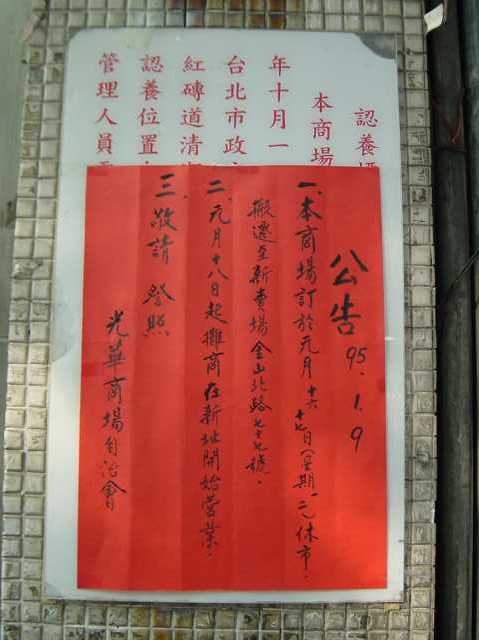 認養
本商場
年十月一
台北市政
紅磚道清
認養位置
管理人員
公告 95.1.9
一、本商場訂於元月十六十七日(星期一二)休市,
搬遷至新賣場金山北路七十號.
二、元月十八日起攤商在新址開始營業.
三、敬請 登照
光華商場自治會